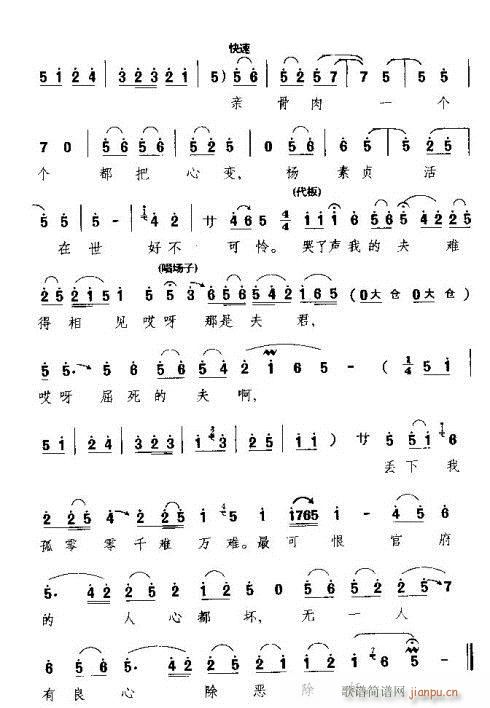 快速
5 1 2 4 | 3 2 3 2 1 | 5) 5 6 | 5 2 5 7 | 7 5 | 5 5 |
亲 骨 肉 一 个
7 0 | 5 6 5 6 | 5 2 5 | 6 5 | 1 6 5 | 5 | 2 5 |
个 都 把 心 变, 杨 素 贞 活
(代板)
5 5 | 5 - | 4 2 | サ 4 6 5 | 4/4 1 1 1 6 5 6 5 4 2 2 5 |
在 世 好 不 可 怜。 哭 了 声 我 的 夫 难
(唱场子)
2 5 2 1 5 1 5 5 3 6 5 6 5 4 2 1 6 5 | (0 大 仓 0 大 仓)
得 相 见 哎 呀 那 是 夫 君,
5 5. 5 6 5 6 5 4 2 1 6 5 5 - ( 1/4 5 1 |
哎 呀 屈 死 的 夫 啊,
5 1 | 2 4 | 3 2 3 | 1 3 | 2 5 | 1 1 ) サ 5 5 1 6
丢 下 我
2 2 5 4 2 2 5 1 5 1 1765 1 - 4 5 6
孤 零 零 千 难 万 难。 最 可 恨 官 府
5. 4 2 2 5 1 2 1 2 5 0 5 6 5 1 2 2 5 7
的 人 心 都 坏, 无 一 人
有 良 心 除 恶 除
歌谱简谱网
jianpu.cn